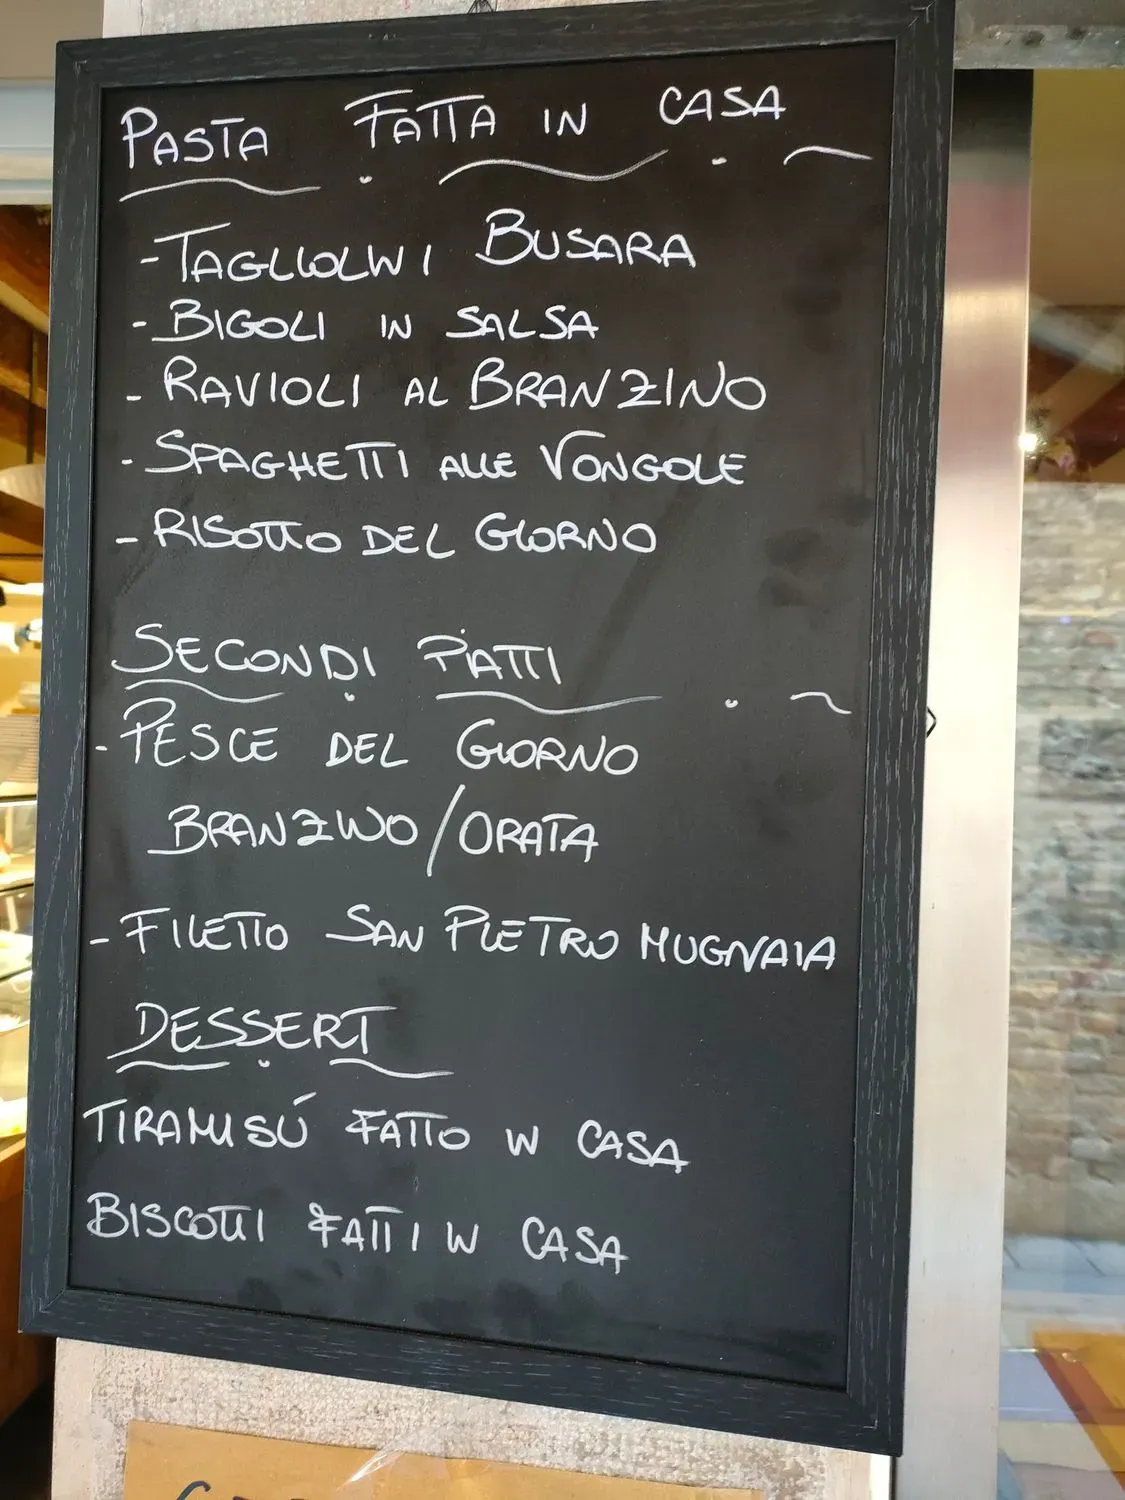 PASTA FATTA IN CASA
- TAGLIOLINI BUSARA
- BIGOLI IN SALSA
- RAVIOLI AL BRANZINO
- SPAGHETTI ALLE VONGOLE
- RISOTTO DEL GIORNO
SECONDI PIATTI
- PESCE DEL GIORNO
BRANZINO/ORATA
- FILETTO SAN PIETRO MUGNAIA
DESSERT
TIRAMISÚ FATTO IN CASA
BISCOTTI FATTI IN CASA